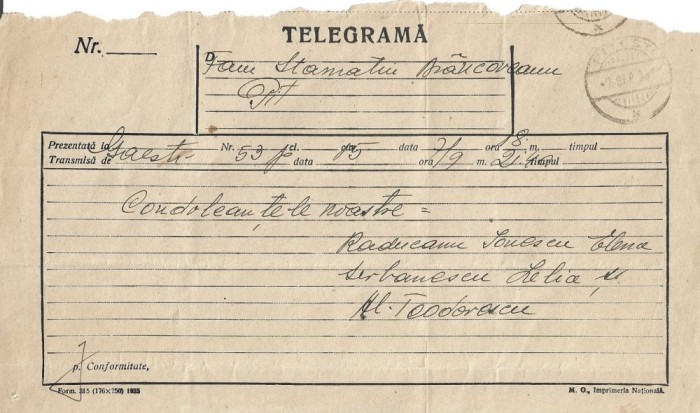 TELEGRAMĂ
Nr.
D
Fam Stamatiu Brâncoveanu
Pit
Prezentată la Gaesti Nr. 53 p cl. cuv. 15 data 7/9 ora 8 m. timpul
Transmisă de data ora m. timpul
Condoleanțele noastre =
Raduceanu Ionescu Elena
Serbanescu Lelia și
Al. Teodorescu
p. Conformitate,
Form. 315 (176×250) 1935
M. O., Imprimeria Națională.